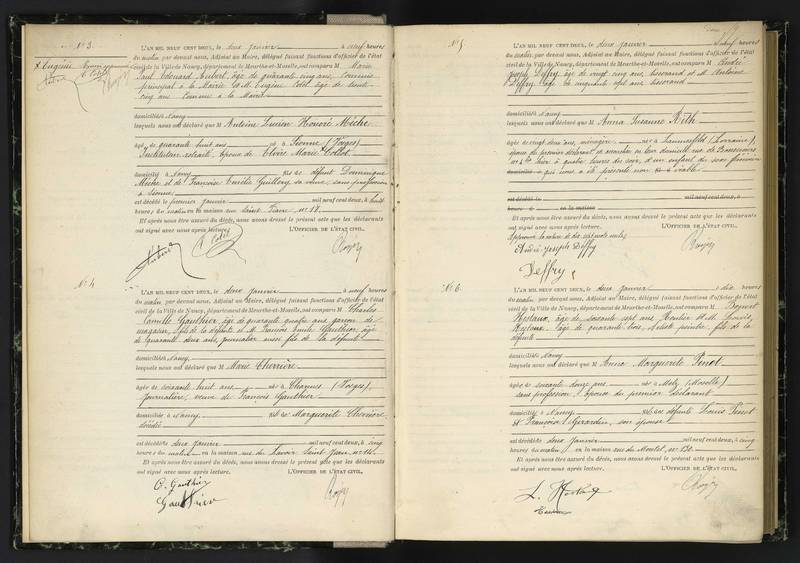 N° 3.
L'AN MIL NEUF CENT DEUX, le deux janvier à neuf heures
du matin par devant nous, Adjoint au Maire, délégué faisant fonctions d'officier de l'état
civil de la Ville de Nancy, département de Meurthe-et-Moselle, ont comparu M Marie
Paul Edouard Aubert, âgé de quarante cinq ans, Commis
principal à la Mairie et M. Eugène
cinq ans Commis à la Mairie
domiciliés Nancy
lesquels nous ont déclaré que M Antoine Lucien Honoré Miche
âgé de quarante huit ans né à (Vosges)
Instituteur retraité, époux de Marie Collot
domicilié à Nancy fils de défunt Dominique
Miche et de Françoise Guillery sa veuve, sans profession
à
est décédé le premier janvier mil neuf cent deux, à huit
heures du matin en la maison rue Saint n° 18.
Et après nous être assuré du décès, nous avons dressé le présent acte que les déclarants
ont signé avec nous après lecture. L'OFFICIER DE L'ÉTAT CIVIL,
N° 4.
L'AN MIL NEUF CENT DEUX, le deux janvier à neuf heures
du matin par devant nous, Adjoint au Maire, délégué faisant fonctions d'officier de l'état
civil de la Ville de Nancy, département de Meurthe-et-Moselle, ont comparu M Charles
Camille Gauthier, âgé de quarante quatre ans garçon de
magasin, fils de la défunte et M. François Emile Gauthier, âgé
de quarante deux ans, journalier aussi fils de la défunte
domiciliés Nancy
lesquels nous ont déclaré que M Marie Cherrière
âgée de soixante huit ans née à Charmes (Vosges),
journalière, veuve de François Gauthier
domiciliée à Nancy fille de Marguerite Cherrière
décédée
est décédée le deux janvier mil neuf cent deux, à cinq
heures du matin en la maison rue du Saint Jean n° 14.
Et après nous être assuré du décès, nous avons dressé le présent acte que les déclarants
ont signé avec nous après lecture. L'OFFICIER DE L'ÉTAT CIVIL,
C. Gauthier
Gauthier
N° 5
L'AN MIL NEUF CENT DEUX, le deux janvier à neuf heures
du matin par devant nous, Adjoint au Maire, délégué faisant fonctions d'officier de l'état
civil de la Ville de Nancy, département de Meurthe-et-Moselle, ont comparu M André
Joseph Deffry, âgé de vingt cinq ans, tisserand et M. Antoine
Deffry âgé de cinquante sept ans tisserand
domiciliés Nancy
lesquels nous ont déclaré que M Anna Suzanne Rith
âgée de vingt deux ans, ménagère née à (Lorraine),
épouse du premier déclarant, est accouchée en leur domicile rue de
n° hier à quatre heures du soir, d'un enfant du sexe féminin
domicilié à qui nous a été présenté non viable
est décédé le mil neuf cent deux, à
heures en la maison
Et après nous être assuré du décès, nous avons dressé le présent acte que les déclarants
ont signé avec nous après lecture. L'OFFICIER DE L'ÉTAT CIVIL,
André Joseph Deffry
Deffry
N° 6.
L'AN MIL NEUF CENT DEUX, le deux janvier à dix heures
du matin par devant nous, Adjoint au Maire, délégué faisant fonctions d'officier de l'état
civil de la Ville de Nancy, département de Meurthe-et-Moselle, ont comparu M
âgé de soixante sept ans, et M. Louis
âgé de quarante trois ans, Artiste peintre, fils de la
défunte
domiciliés Nancy
lesquels nous ont déclaré que M Anna Marguerite Pinot
âgée de soixante douze ans née à Metz (Moselle)
sans profession, épouse du premier déclarant
domiciliée à Nancy fille de défunts Louis Pinot
et Françoise Girardin, son épouse
est décédée le deux janvier mil neuf cent deux, à cinq
heures du matin en la maison rue du n° 130.
Et après nous être assuré du décès, nous avons dressé le présent acte que les déclarants
ont signé avec nous après lecture. L'OFFICIER DE L'ÉTAT CIVIL,